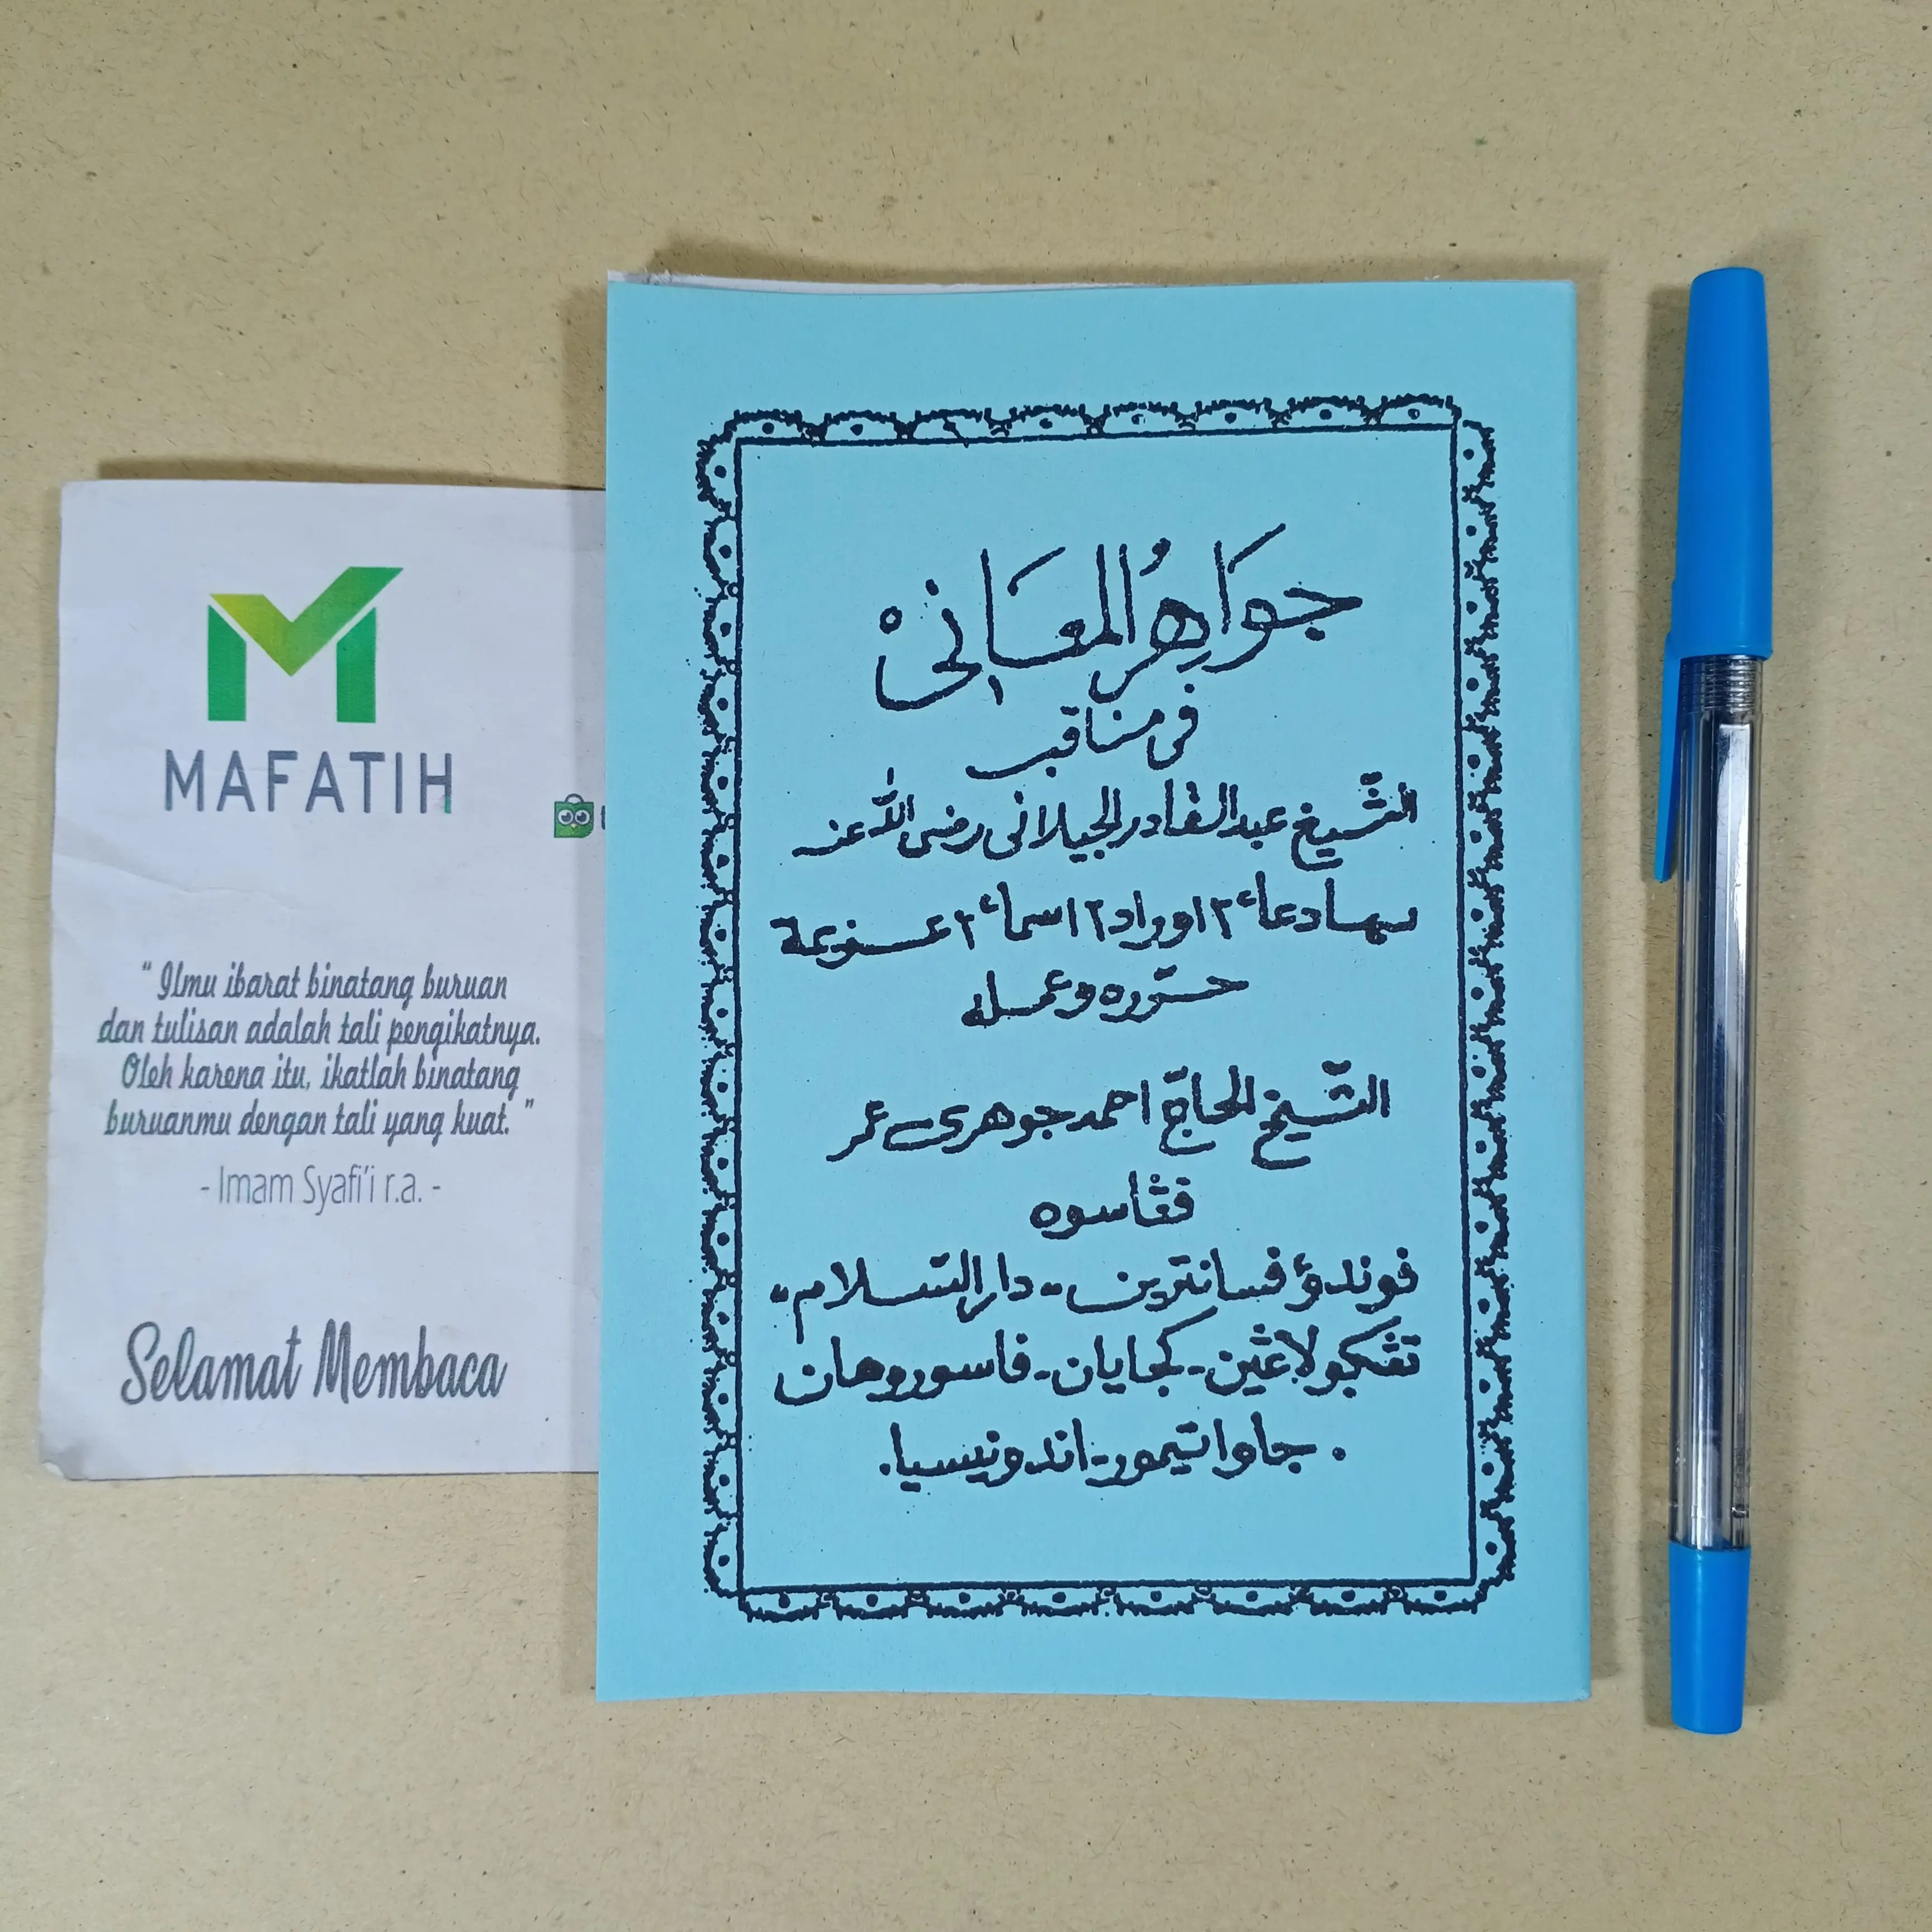 MAFATIH
“ Ilmu ibarat binatang buruan
dan tulisan adalah tali pengikatnya.
Oleh karena itu, ikatlah binatang
buruanmu dengan tali yang kuat. ”
- Imam Syafi'i r.a. -
Selamat Membaca
جَوَاهِرُ المعَانِى
فى مناقب
الشّيخ عبد القادر الجيلانى رضى الله عنه
دعاء٢ اوراد٢ اسماء٢
الشّيخ الحاجّ احمد جوهرى عمر
ڤڠاسوه
ڤوندؤ ڤسانترين - دار السّلام -
كجايان - ڤاسوروهان
. جاوا تيمور - اندونيسيا .